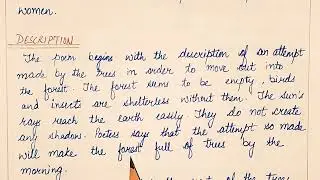 women.
DESCRIPTION
The poem begins with the description of an attempt
made by the trees in order to move out into
the forest. The forest seems to be empty, birds
and insects are shelterless without them. The sun's
rays reach the earth easily They do not create
any shadow. Poetess says that the attempt so made
will make the forest full of trees by the
morning.
of the trees